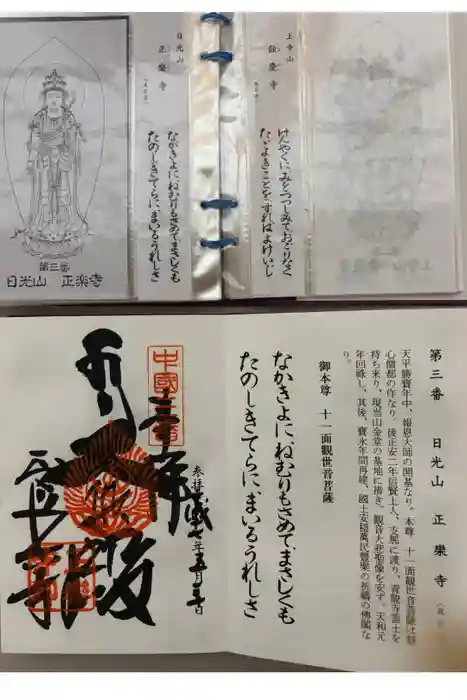 上寺山
餘慶寺
けんやくにみをつつしみておごりなく
たゞよきことをすればよけいじ
日光山
正樂寺
ながきよにねむりもさめてまさしくも
たのしきてらにまいるうれしさ
第三番
日光山 正楽寺
第三番 日光山 正樂寺
天平勝寶年中、報恩大師の開基なり。本尊 十一面觀世音菩薩は
心僧都の作なり。後正安二年信賢上人、支那に渡り、青龍寺靈土を
持ち来り、現当山金堂の基地に播き、觀音大悲聖像を安す。天和元
年回祿し、其後、寶永年間再建、國土安穏萬民豐樂の祈禱の佛閣な
り。
御本尊 十一面觀世音菩薩
なかきよにねむりもさめてまさしくも
たのしきてらにまいるうれしさ
中國三番
参拝
平成十七年五月三日